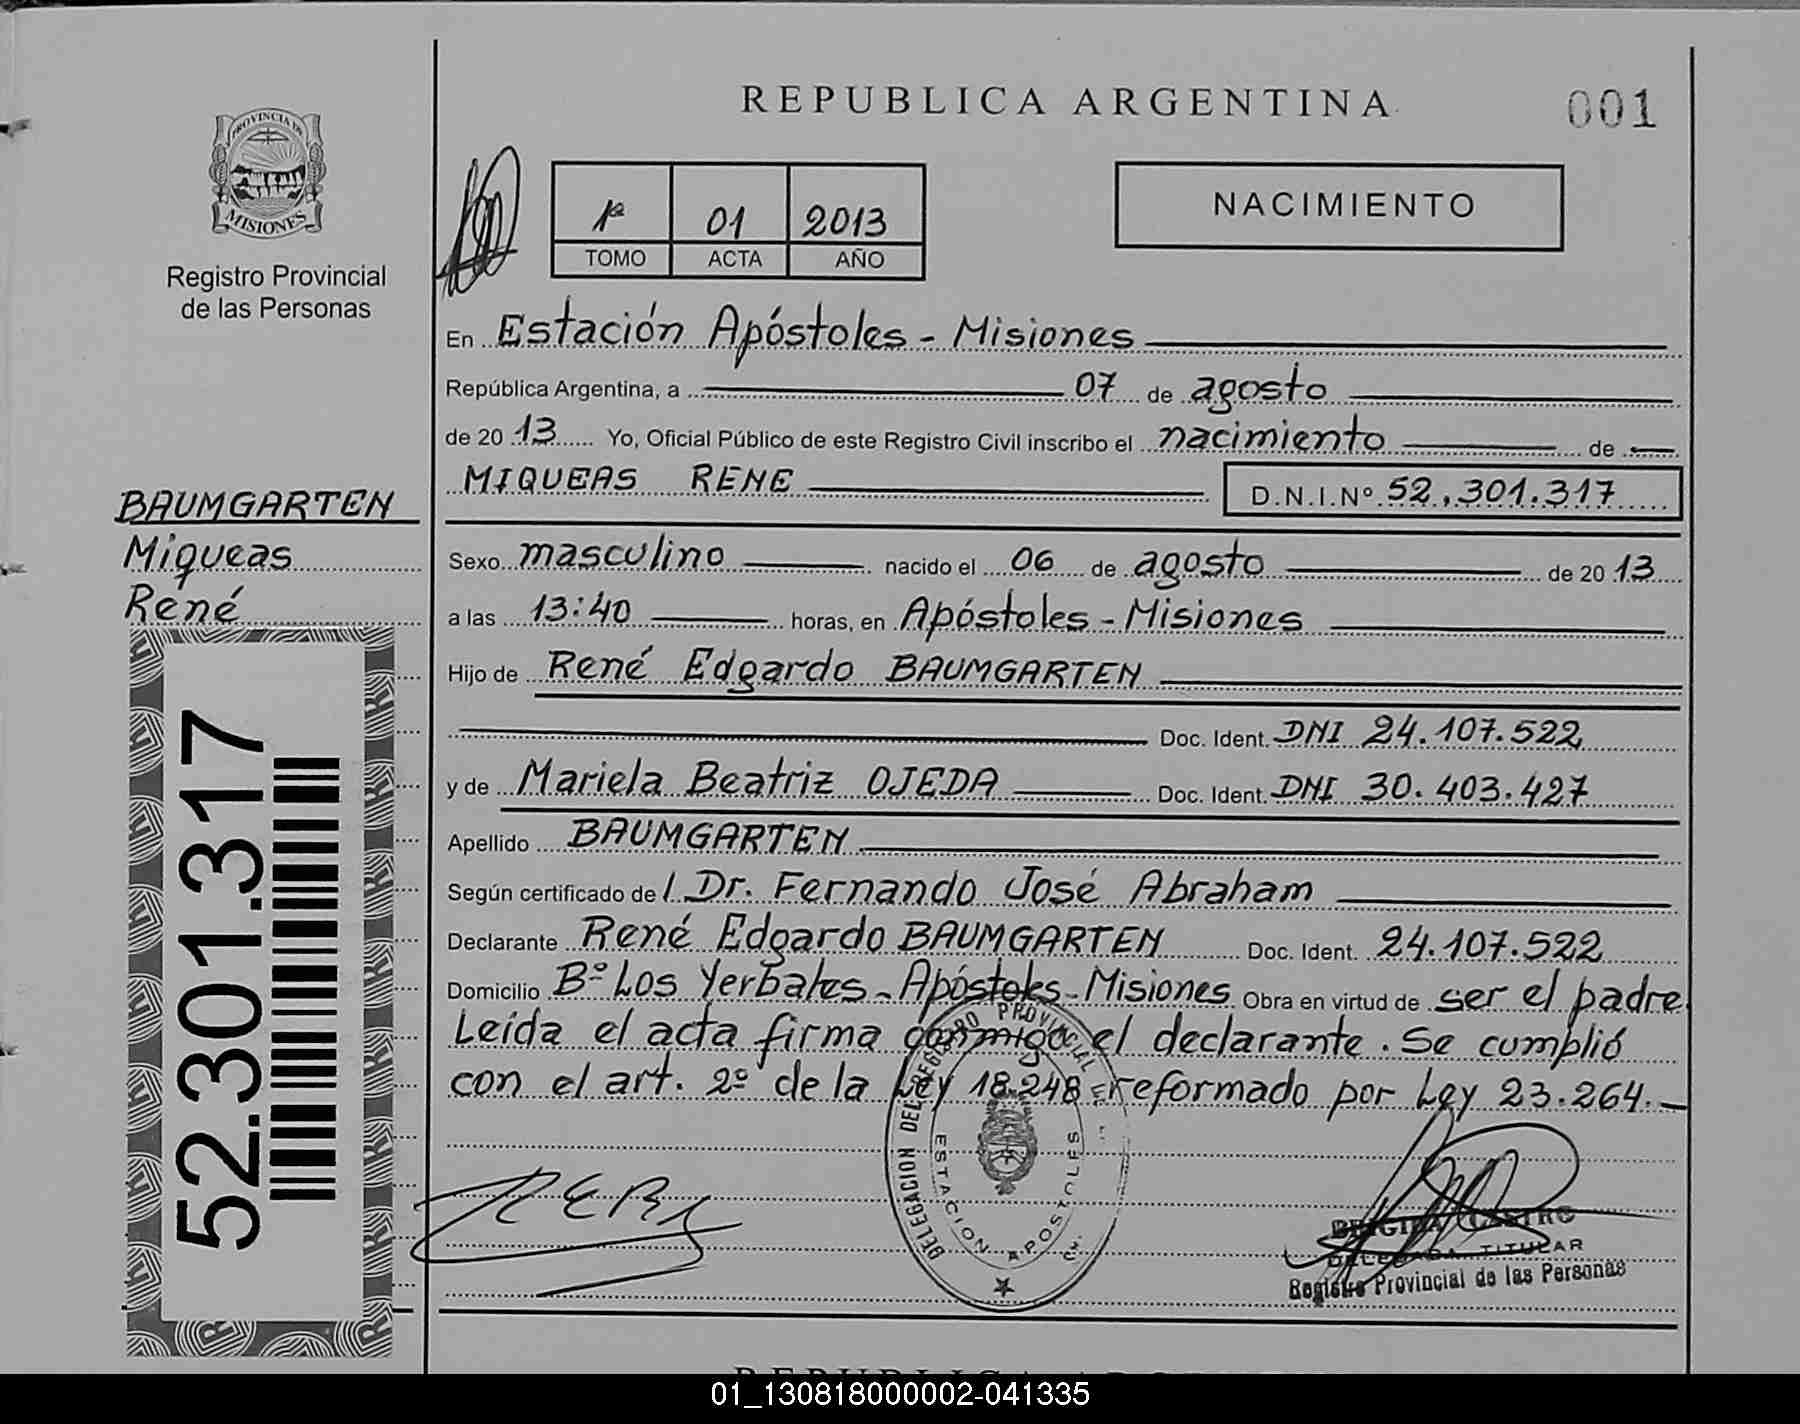 REPUBLICA ARGENTINA
001
PROVINCIA DE
MISIONES
Registro Provincial
de las Personas
1º 01 2013
TOMO ACTA AÑO
NACIMIENTO
En Estación Apóstoles - Misiones
República Argentina, a 07 de agosto
de 20 13 Yo, Oficial Público de este Registro Civil inscribo el nacimiento de
MIQUEAS RENE D.N.I.Nº 52.301.317
BAUMGARTEN
Miqueas
René
52.301.317
Sexo masculino nacido el 06 de agosto de 20 13
a las 13:40 horas, en Apóstoles - Misiones
Hijo de René Edgardo BAUMGARTEN
Doc. Ident. DNI 24.107.522
y de Mariela Beatriz OJEDA Doc. Ident. DNI 30.403.427
Apellido BAUMGARTEN
Según certificado de l Dr. Fernando José Abraham
Declarante René Edgardo BAUMGARTEN Doc. Ident. 24.107.522
Domicilio Bº Los Yerbales - Apóstoles - Misiones Obra en virtud de ser el padre.
Leída el acta firma conmigo el declarante. Se cumplió
con el art. 2º de la Ley 18.248 reformado por Ley 23.264.-
DELEGACION DEL REGISTRO PROVINCIAL
ESTACION APOSTOLES
BRIGIDA CASTRO
DELEGADA TITULAR
Registro Provincial de las Personas
REPUBLICA ARGENTINA
01_130818000002-041335